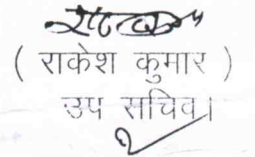 ( राकेश कुमार )
उप सचिव।